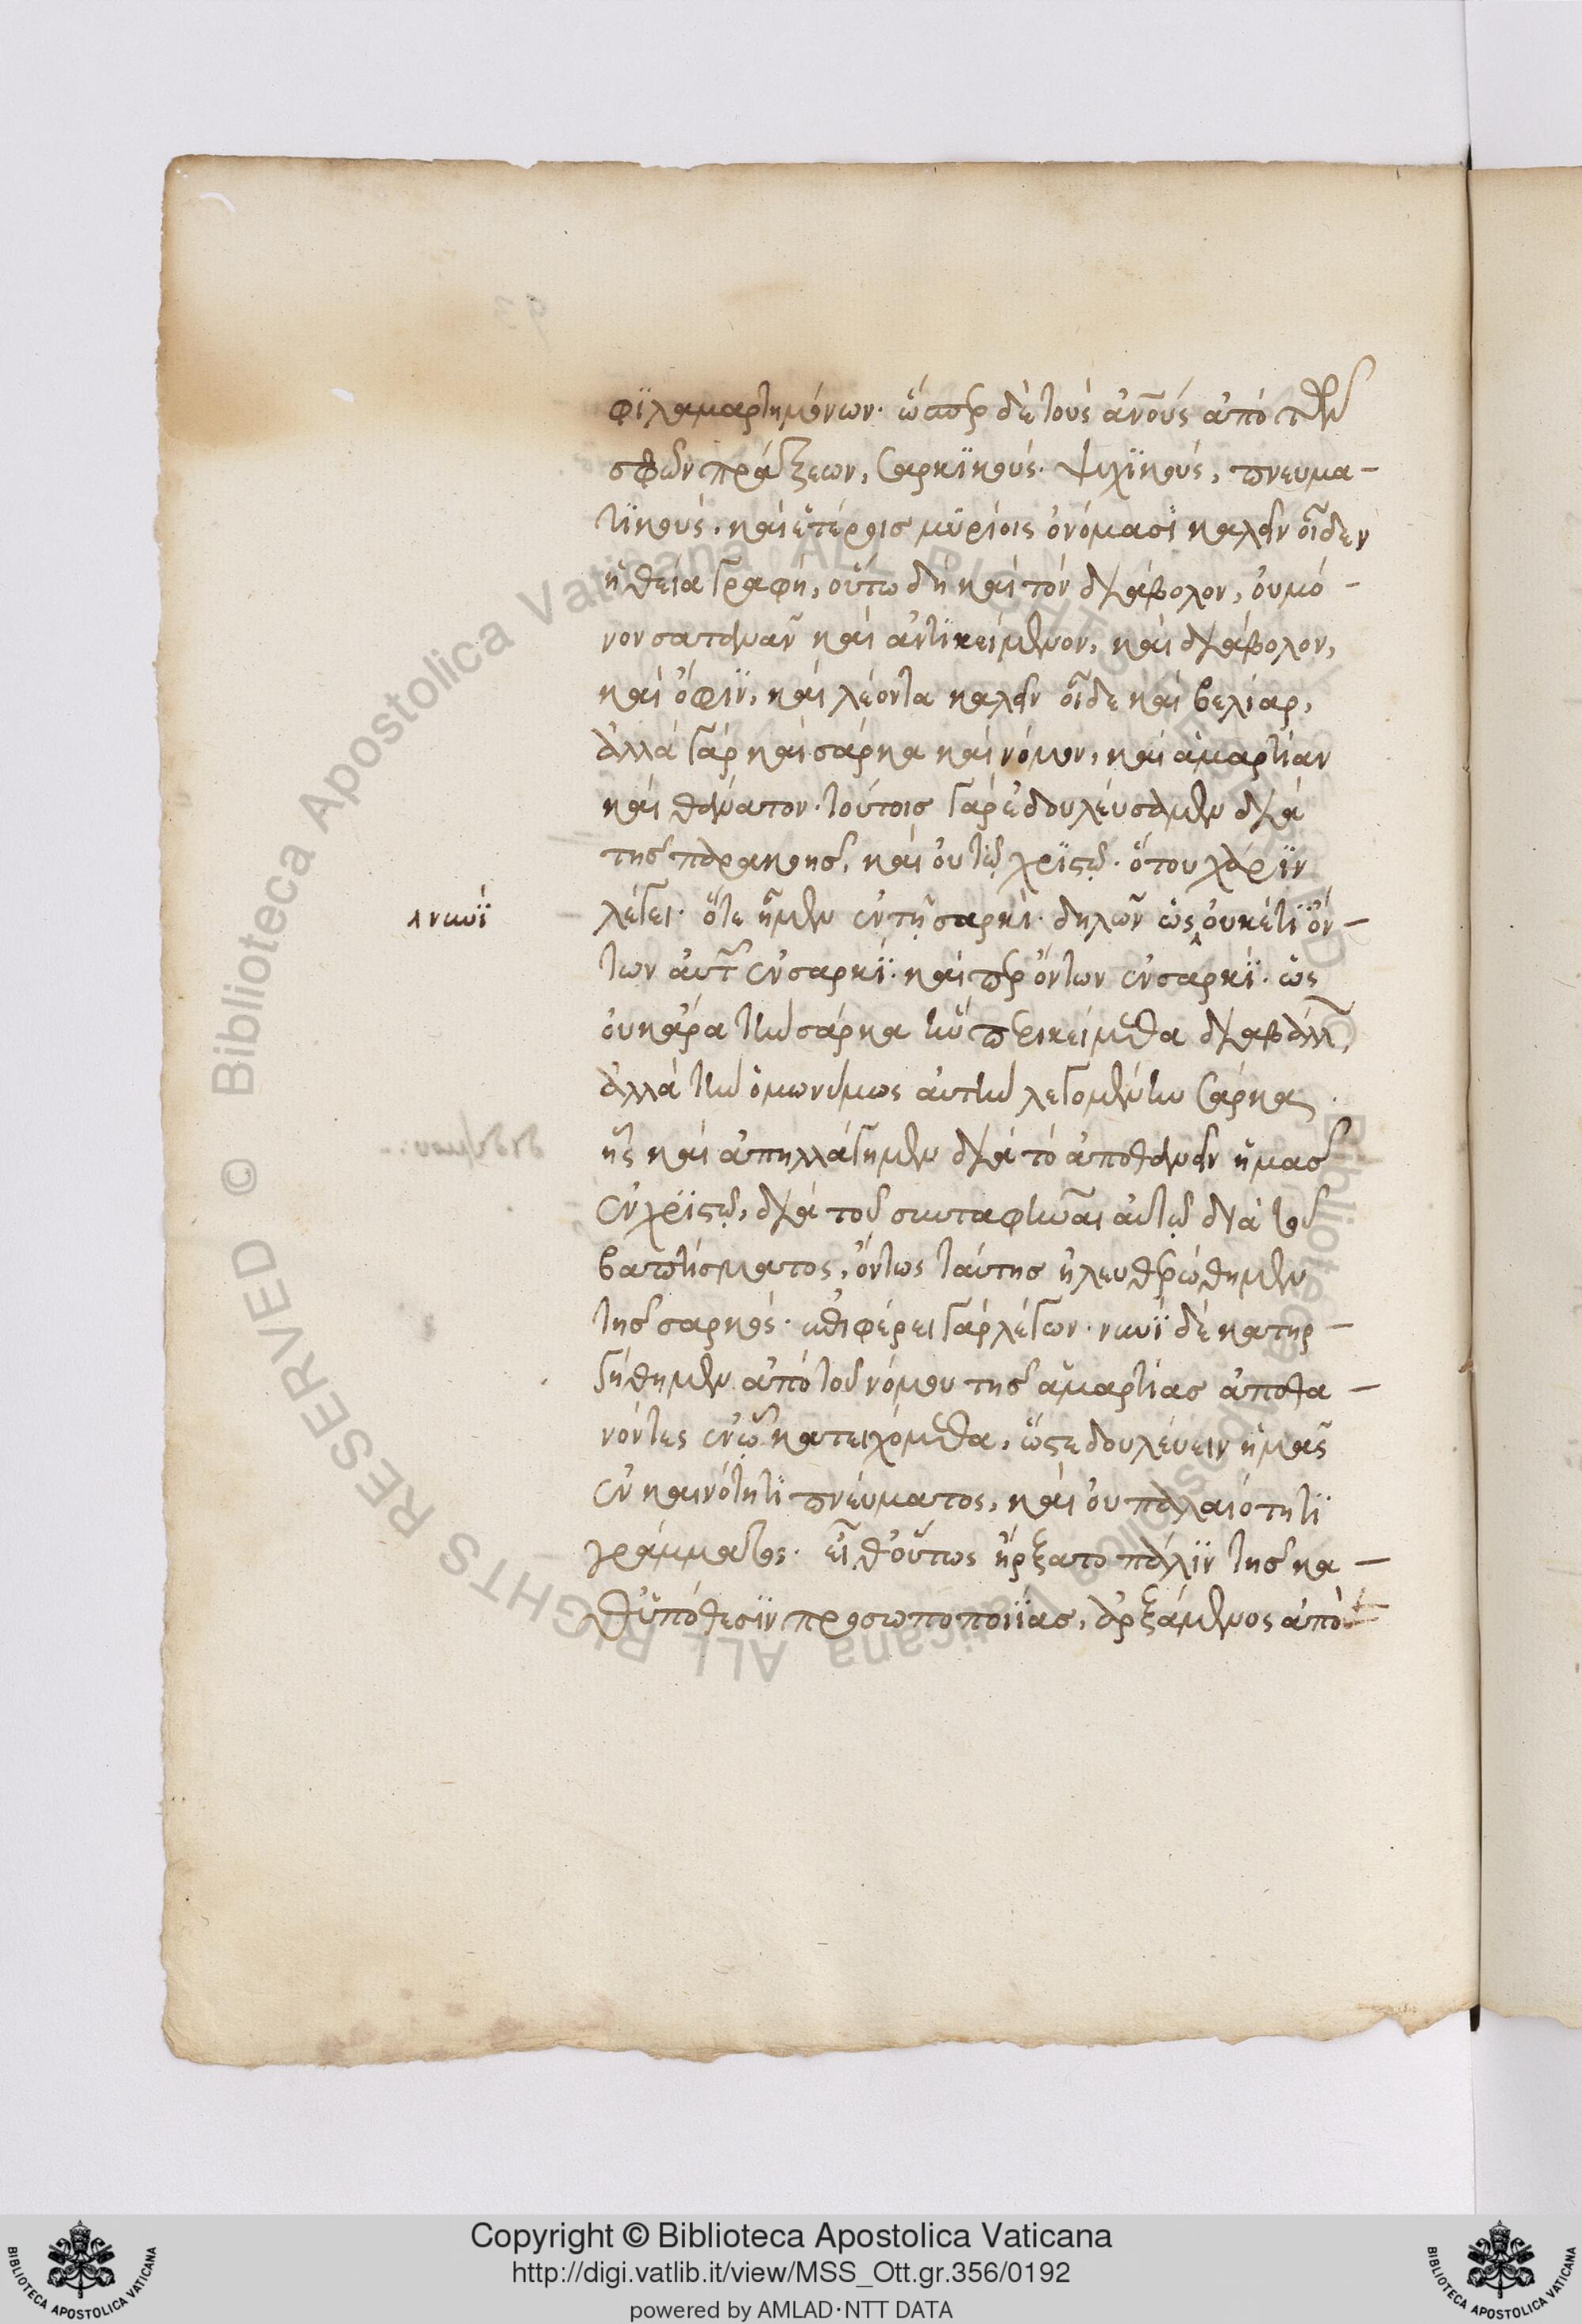 φϊλαμαρτημόνων· ὥσπερ δὲ τοὺς ἀνοὺς ἀπὸ τῶν
σφῶν πράξεων, σαρκϊκοὺς· ψυχϊκοὺς, πνευμα-
τϊκοὺς, καὶ ἑτέροις μυρίοις ὀνόμασϊ καλεῖν οἶδεν
ἡ θεία γραφὴ, οὕτω δὴ καὶ τὸν διάβολον, οὐ μό-
νον σατανᾶν καὶ ἀντικείμενον, καὶ διάβολον,
καὶ ὄφιν, καὶ λέοντα καλεῖν οἶδε καὶ βελίαρ,
ἀλλὰ γὰρ καὶ σάρκα καὶ νόμον, καὶ ἁμαρτίαν
καὶ θάνατον· τούτοις γὰρ ἐδουλεύσαμεν διὰ
τῆς παρακοῆς, καὶ οὐ τῷ χρϊστῷ· ὅτου χάρϊν
λέγει· ὅτε ἦμεν ἐν τῇ σαρκί· δηλῶν ὡς οὐκέτι ὄν-
νυνϊ
των αὐτῶν ἐν σαρκϊ· καίπερ ὄντων ἐν σαρκϊ· ὡς
οὐκ ἄρα τὴν σάρκα ἣν περικείμεθα διαβάλλει,
ἀλλὰ τὴν ὁμωνύμως αὐτὴν λεγομένην σάρκα·
ἧς καὶ ἀπηλλάγημεν διὰ τὸ ἀποθανεῖν ἡμᾶς
ἐν χρϊστῷ, διὰ τοῦ συνταφῆναι αὐτῷ διὰ τοῦ
βαπτίσματος, ὄντως ταύτης ἠλευθερώθημεν
τῆς σαρκός· ἐπιφέρει γὰρ λέγων· νυνϊ δὲ κατηρ-
γήθημεν ἀπὸ τοῦ νόμου τῆς ἁμαρτίας ἀποθα-
νόντες ἐν ᾧ κατειχόμεθα, ὥστε δουλεύειν ἡμᾶς
ἐν καινότητι πνεύματος, καὶ οὐ παλαιότητϊ
γράμματος· εἶθ' οὕτως ἤρξατο πάλϊν τῆς κα-
θ' ὑπόθεσϊν προσωποποιΐας, ἀρξάμενος ἀπὸ
Copyright © Biblioteca Apostolica Vaticana
http://digi.vatlib.it/view/MSS_Ott.gr.356/0192
powered by AMLAD·NTT DATA